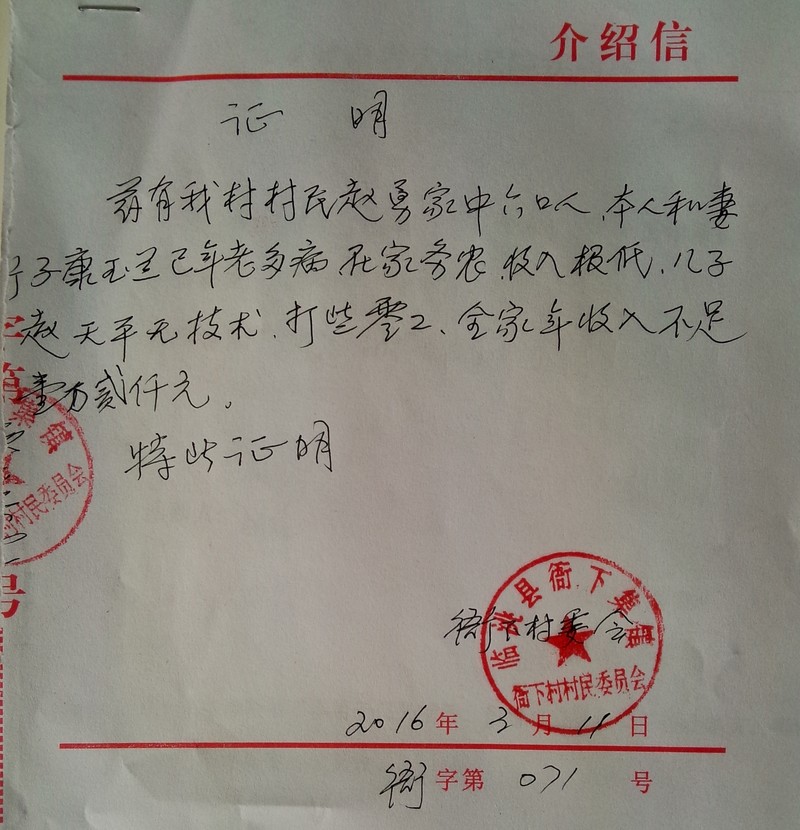 介绍信
证 明
兹有我村村民赵勇家中六口人、本人和妻
子康玉兰已年老多病、在家务农、收入极低、儿子
赵天平无技术、打些零工、全家年收入不足
壹万贰仟元。
特此证明
衙下村委会
临洮县衙下集镇
衙下村村民委员会
2016年3月11日
衙字第071号
字第
集镇
村村民委员会
号